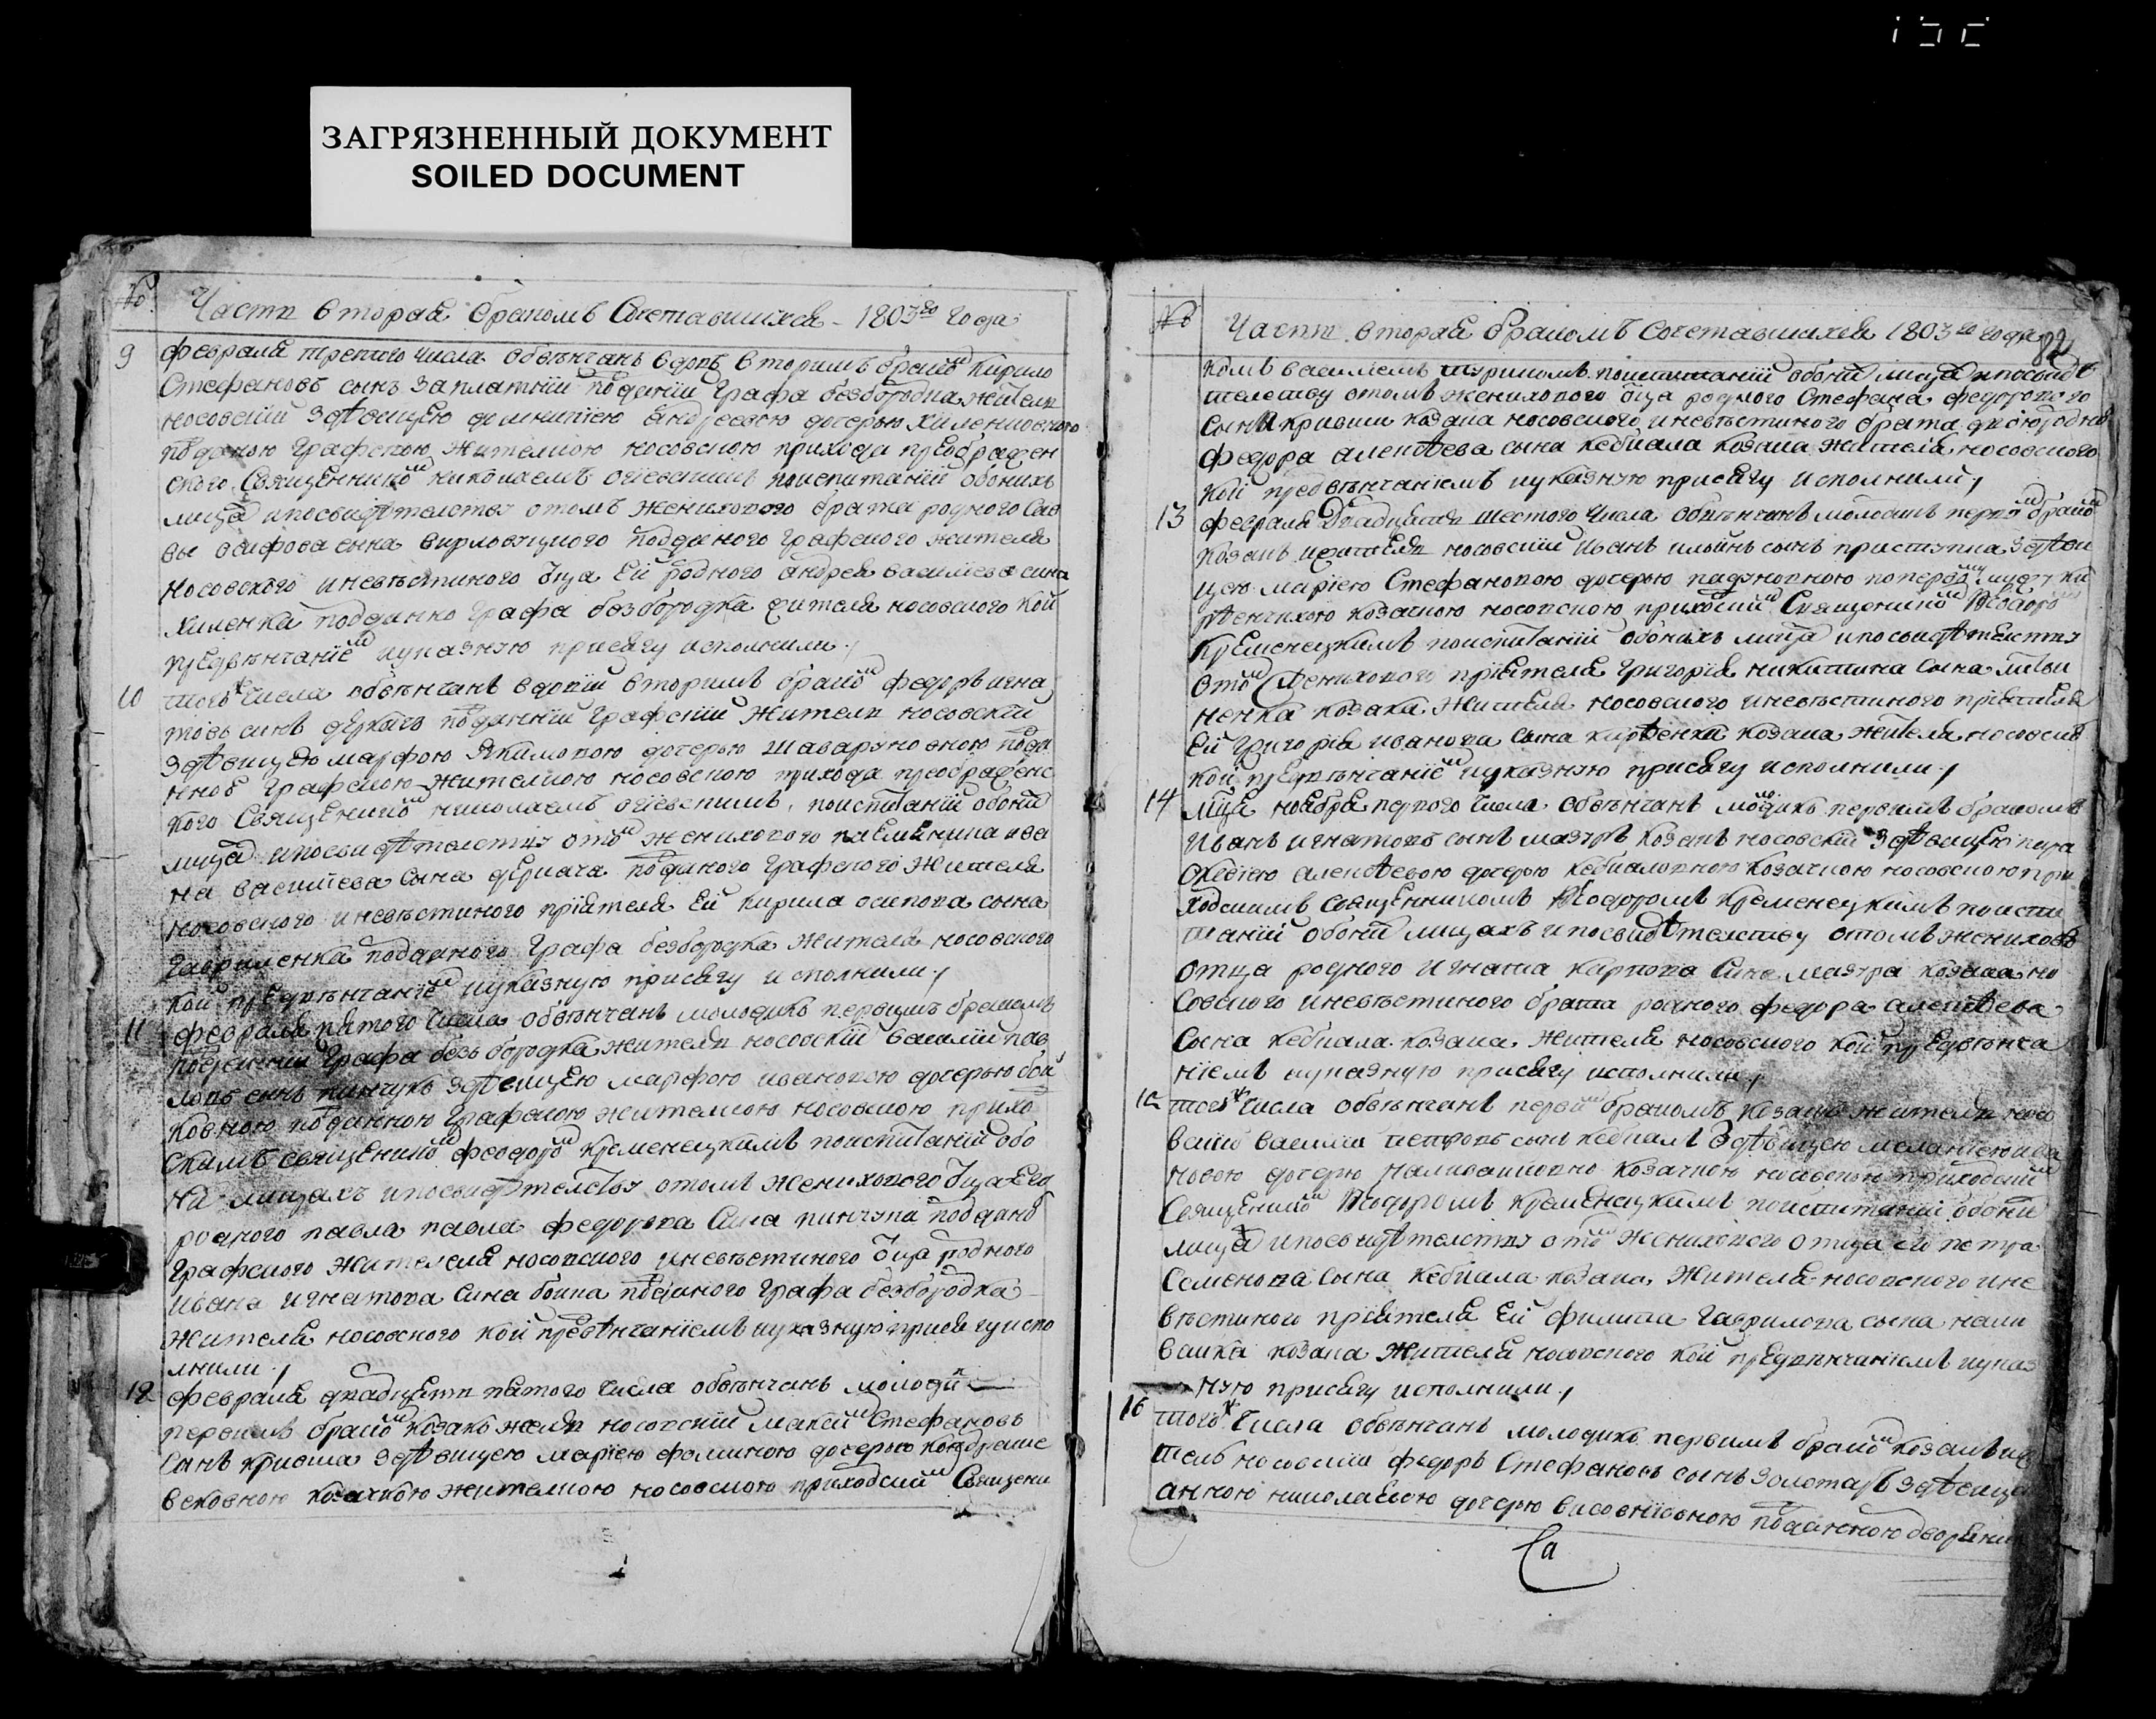 ЗАГРЯЗНЕННЫЙ ДОКУМЕНТ
SOILED DOCUMENT
№
Части вторая бракомъ Сочетавшихся 1803го года
9
февраля третого числа обвѣнчанъ вдовъ вторимъ бракомъ Кирило
Стефановъ сынъ Заплатній подданій Графа безбородка жителъ
носовскій здѣвицею Андреевою дочерью Хименковною
подданою Графскою жителкою носовскою прихода преображен
ского Священникомъ николаемъ огіевскимъ поиспитаніи обоихъ
лицахъ ипосвидѣтелству отомъ женихового брата родного Сав
вы осифова сына подданого Графского жителя
носовского иневѣстиного отца Ей родного андрея василіева сина
Хименка подданно Графа безбородка жителя носовского кои
предвѣнчаніемъ иуказную присягу исполнили
10
того ж числа обвѣнчанъ вдовій вторимъ бракомъ федоръ игна
товъ синъ деркачъ подданній Графскій жителъ носовскій
здѣвицею марфою Якимовою дочерью шаваруновною подда
нною Графскою жителкою носовскою прихода преображенс
кого Священникомъ николаемъ огіевскимъ поиспитаніи обоихъ
лицахъ ипосвидѣтелству отомъ женихового племѣника ива
на василіева сына деркача подданого Графского жителя
носовского иневѣстиного пріятеля Ей кирила осипова сына
Гавриленка подданного Графа безбородка жителя носовского
кои предвѣнчаніемъ иуказную присягу исполнили
11
февраля пятого числа обвѣнчанъ молодикъ первимъ бракомъ
подданній Графа безъбородка жителъ носовскій василій пав
ловъ синъ пинчукъ здѣвицею марфою ивановою дочерью бой
ковною подданною Графскою жителкою носовскою прихо
скимъ священикомъ феодоромъ кременецкимъ поиспитаніи обо
их лицахъ ипосвидѣтелству отомъ женихового отца Его
родного павла павла федорова Сина пинчука подданого
Графского жителя носовского иневѣстиного отца родного
ивана игнатова Сина бойка подданного Графа безбородка
жителя носовского кои превѣнчаніемъ иуказную присягу испо
лнили
12
февраля двадцять пятого числа обвѣнчанъ молодикъ
первимъ бракомъ козакъ жителъ носовскій максимъ Стефановъ
синъ кривша здѣвицею маріею фоминою дочерью
козачкою жителкою носовскою приходскимъ Священи
№
Части вторая бракомъ Сочетавшихся 1803го года
82
комъ василіемъ поиспитаніи обоихъ лицахъ ипосвидѣ
телству отомъ женихового отца родного Стефана федорового
сына кривши козака носовского иневѣстиного брата двоюродного
федора алексѣева сына кебкала козака жителя носовского
кои предвѣнчаніемъ иуказную присягу исполнили
13
февраля двадцять шестого числа обвѣнчанъ молодикъ первимъ бракомъ
козакъ ижителъ носовскій иванъ ильинъ сынъ приступка здѣви
цею маріею Стефановою дочерью падуновною по первому мужу ки
рѣенчихою козачкою носовскою приходскимъ Священикомъ Феодоромъ
Кременецкимъ поиспитаніи обоихъ лицахъ ипосвидѣтелству
отомъ женихового пріятеля григорія никитина сына
козака жителя носовского иневѣстиного пріятеля
Ей григорія иванова сына кирѣенка козака жителя носовского
кои предвѣнчаніемъ иуказную присягу исполнили
14
мца ноября первого числа обвѣнчанъ молодикъ первимъ бракомъ
иванъ игнатовъ сынъ мазуръ козакъ носовскій здѣвицею пара
скевіею алексѣевою дочерью кебкаловною козачкою носовскою при
ходскимъ Священникомъ Феодоромъ Кременецкимъ поиспи
таніи обоихъ лицахъ ипосвидѣтелству отомъ женихово
отца родного игната карпова Сина мазура козака но
совского иневѣстиного брата родного федора алексѣева
Сына кебкала козака жителя носовского кои предвѣнча
ніемъ иуказную присягу исполнили
15
того ж числа обвѣнчанъ первимъ бракомъ козакъ жителъ носо
вскій василій петровъ сынъ кебкалъ здѣвицею меланіею ива
новою дочерю наливайковною козачкою носовскою приходскимъ
Священикомъ Феодоромъ Кременецкимъ поиспитаніи обоихъ
лицахъ ипосвидѣтелству отомъ женихового отца его петра
Семенова Сына кебкала козака жителя носовского ине
вѣстиного пріятеля Ей филипа гаврилова сына нали
вайка козака жителя носовского кои предвѣнчаніемъ иуказ
ную присягу исполнили
16
того ж числа обвѣнчанъ молодикъ первимъ бракомъ козакъ жи
тель носовскій федоръ Стефановъ сынъ золотаръ здѣвице
анною николаевою дочерю висовнѣовною подданною дворяни
Са